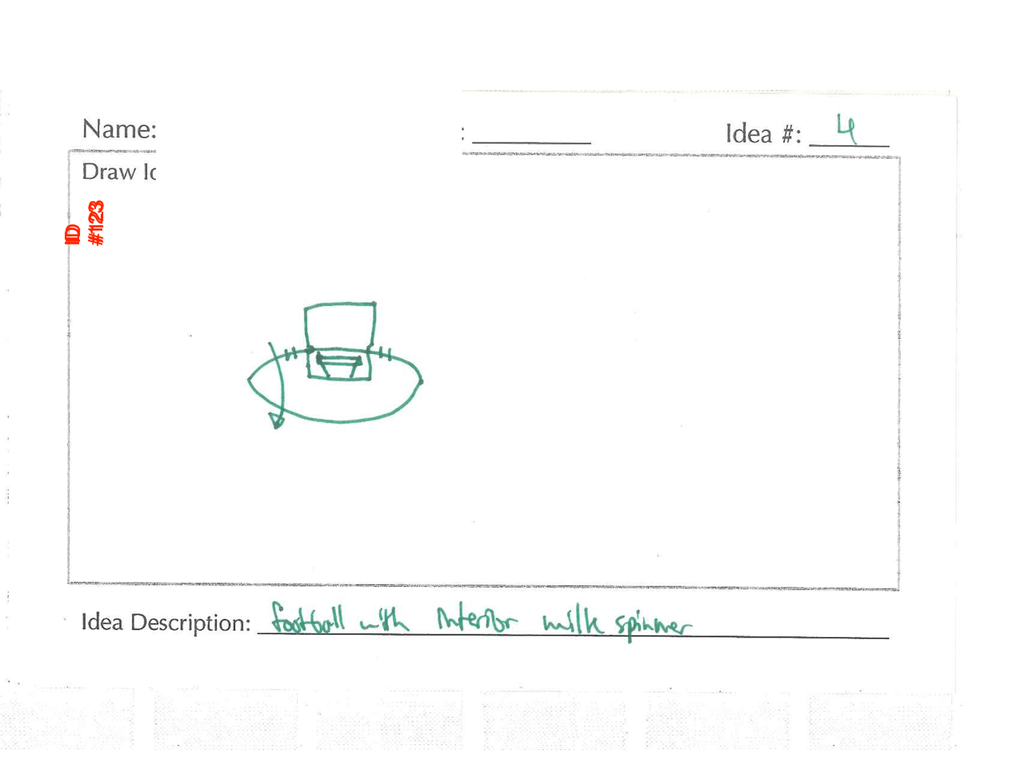 Name:
: Idea #: 4
Draw Id
ID
#123
Idea Description: football with interior milk spinner